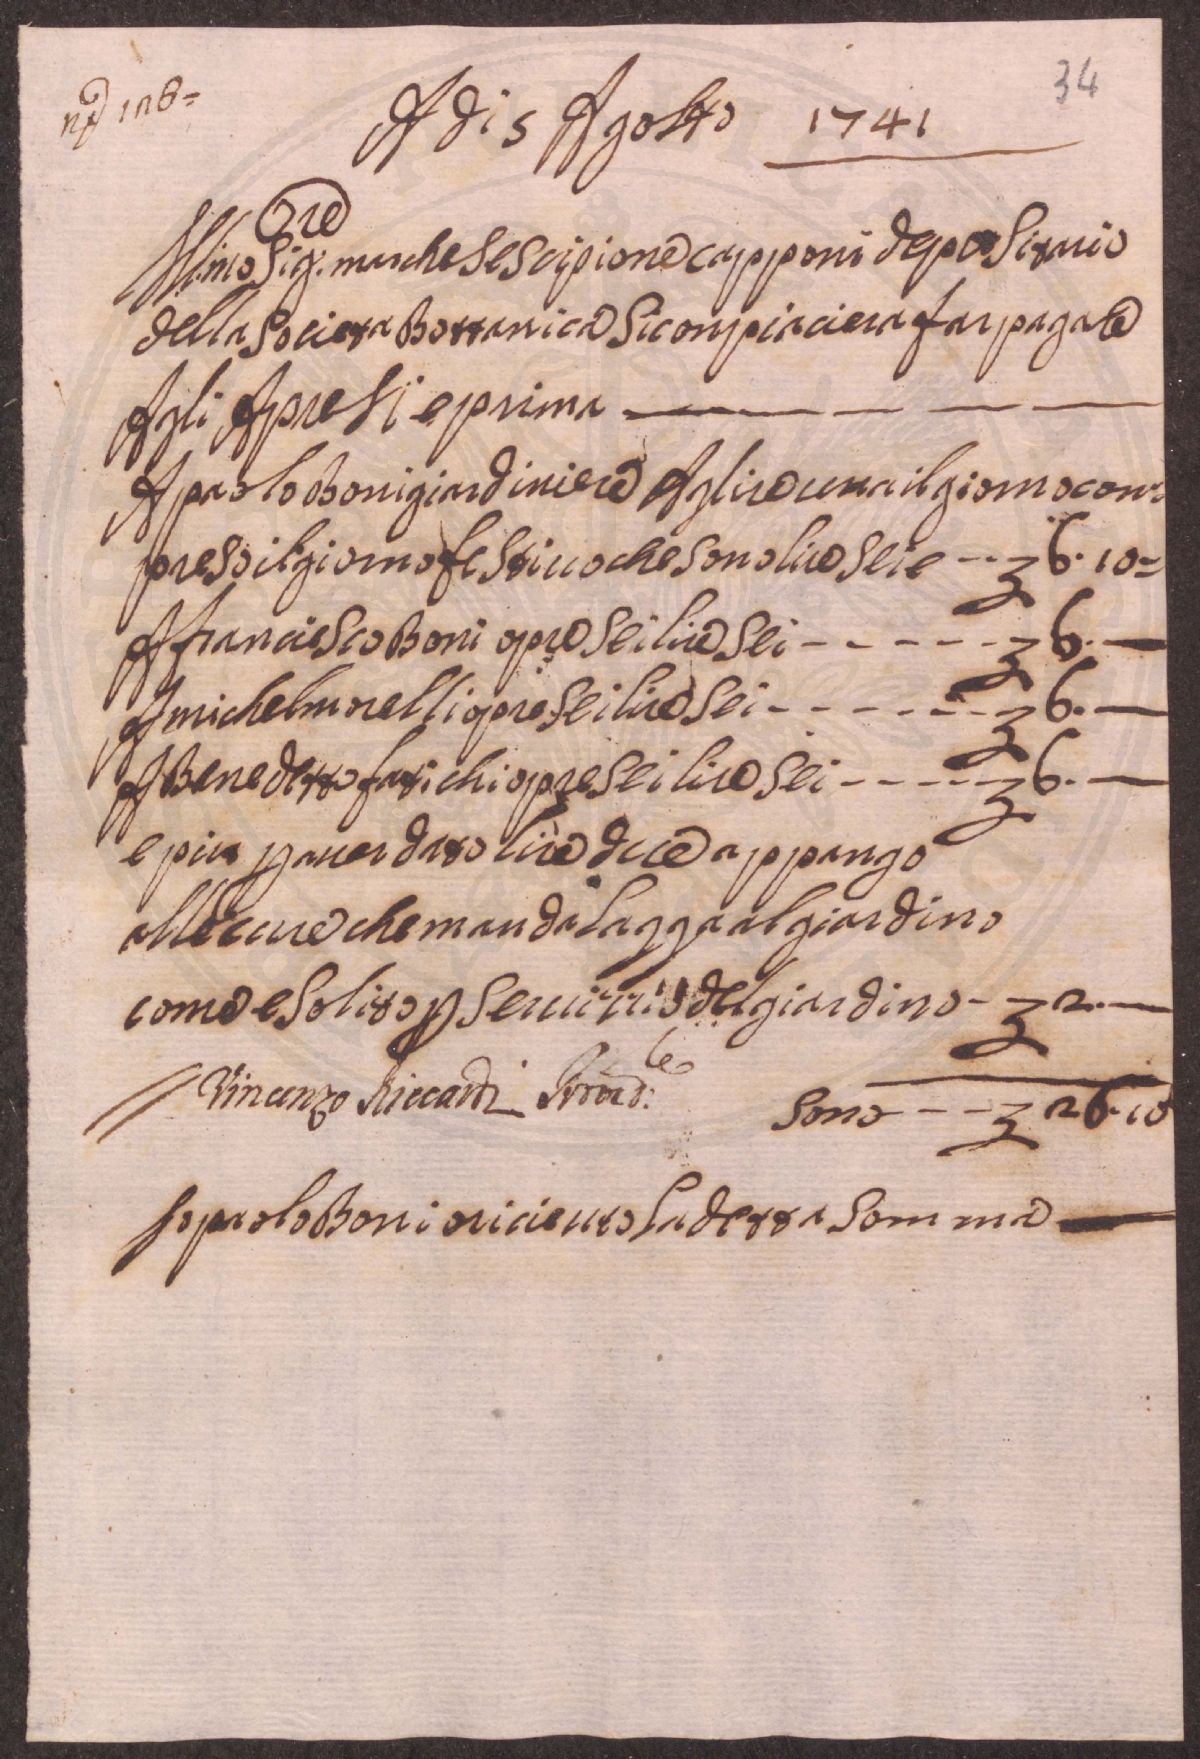 nº 128=
34
A di 5 Agosto 1741
Ill:mo Sig:re marchese Scipione capponi depositario
della Societa Bottanica Si conpiaciera far pagare
Agli Apresi e prima
A paolo Boni giardiniere A lire una il giorno con
preso il giorno festiuo che sono lire Sei e -- £ 6. 10=
A franciesco Boni opre Sei lire Sei ----- £ 6. —
A michel morelli opre Sei lire Sei ------ £ 6. —
A Benedetto fatichi opre Sei lire Sei ---- £ 6. —
e piu p auer dato lire due a
alle che manda laqqua al giardino
come e Solito p Seruizio del giardino - £ 2. —
Vincenzo Riccardi Prou:re
Sono --- £ 26. 10
Io paolo Boni o riceuto la detta Somma